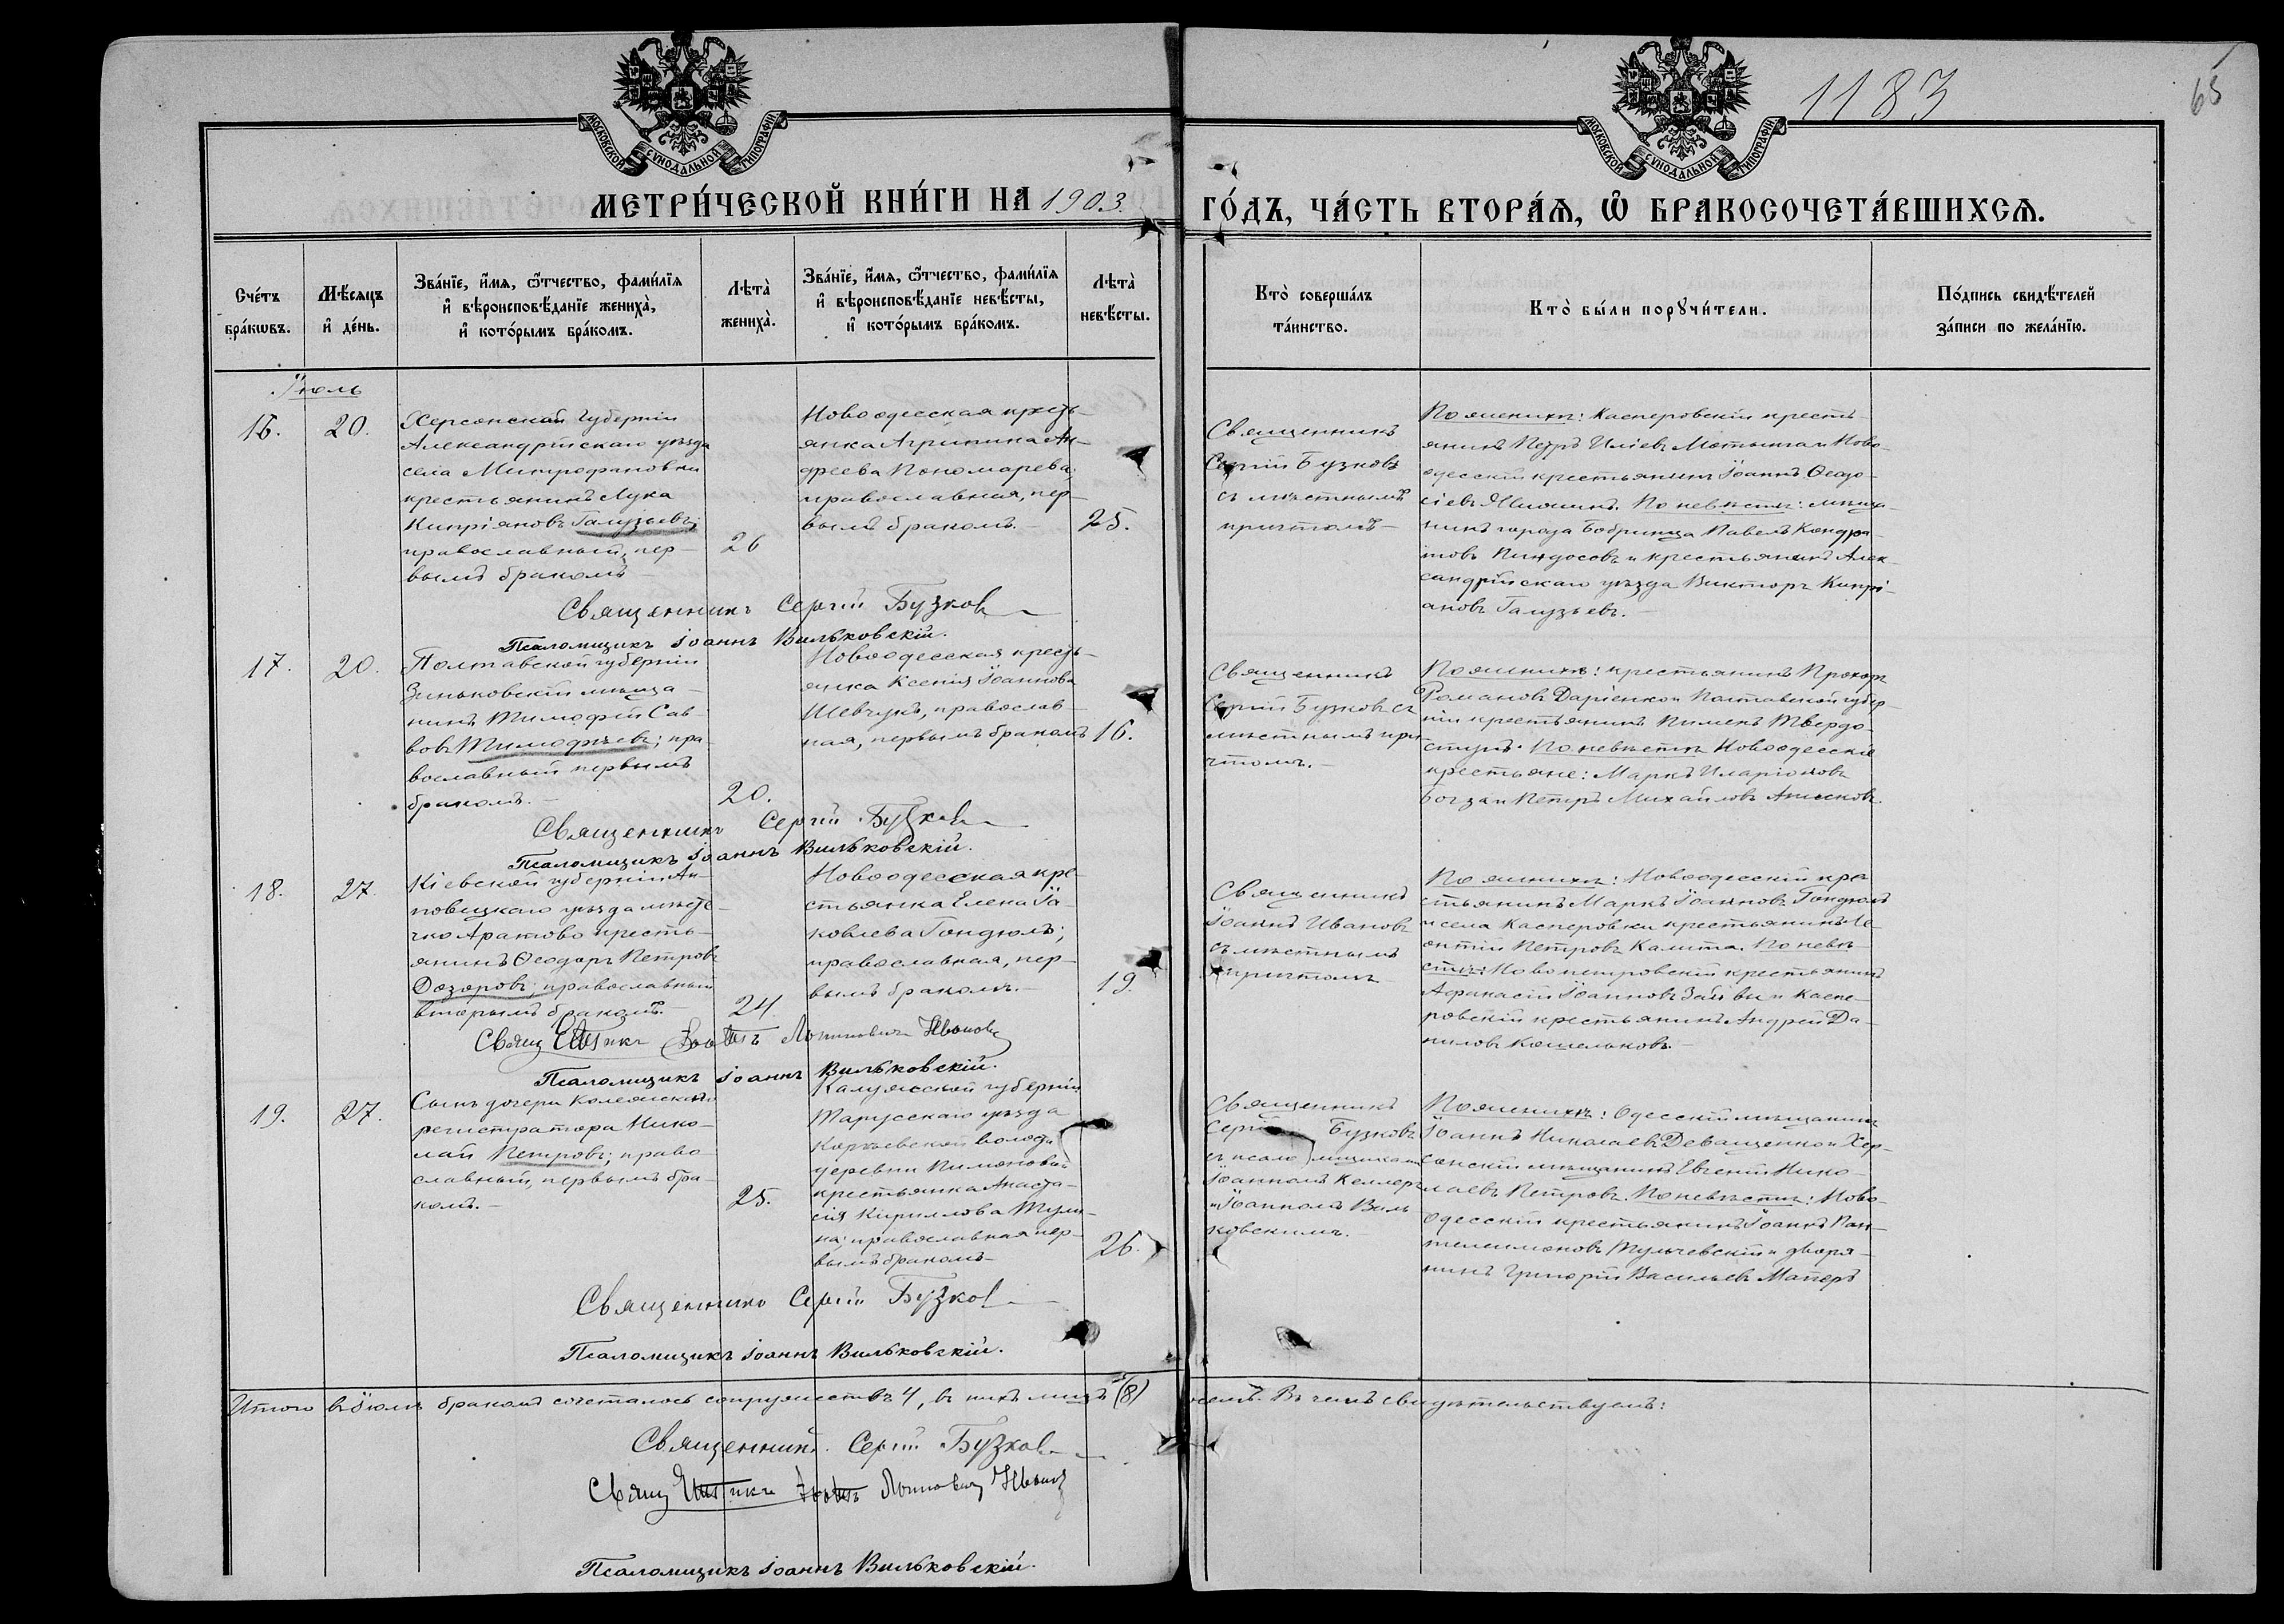 1183
65
МОСКОВСКОЙ СѴНОДАЛЬНОЙ ТИПОГРАФІИ
МОСКОВСКОЙ СѴНОДАЛЬНОЙ ТИПОГРАФІИ
МЕТРИ́ЧЕСКОЙ КНИ́ГИ НА 1903
ГО́ДЪ, ЧА́СТЬ ВТОРА́Я, Ѡ҆ БРАКОСОЧЕТА́ВШИХСЯ.
Сче́тъ
бра́кѡвъ.
Мѣ́сяцъ
и҆ де́нь.
Зва́нїе, и҆́мя, ѻ҆́тчество, фами́лїя
и҆ вѣроисповѣ́данїе жениха̀,
и҆ кото́рымъ бра́комъ.
Лѣта̀
жениха̀.
Зва́нїе, и҆́мя, ѻ҆́тчество, фами́лїя
и҆ вѣроисповѣ́данїе невѣ́сты,
и҆ кото́рымъ бра́комъ.
Лѣта̀
невѣ́сты.
Кто̀ соверша́лъ
та́инство.
Кто̀ бы́ли порꙋчи́тели.
По́дпись свидѣ́телей
за́писи по жела́нїю.
Іюль
16.
20.
Херсонской губерніи
Александрійскаго уѣзда
села Митрофановки
крестьянинъ Лука
Кипріановъ Галузьевъ;
православный, пер-
вымъ бракомъ
26
Новоодесская кресть-
янка Агрипина Ан-
дреева Пономарева;
православная, пер-
вымъ бракомъ.
25.
Священникъ
Сергій Бузковъ
съ мѣстнымъ
причтомъ
По женихѣ: Касперовскій кресть-
янинъ Петръ Иліевъ и Ново-
одесскій крестьянинъ Іоаннъ Ѳеодо-
сіевъ По невѣстѣ: мѣща-
нинъ города Бобринца Павелъ Кондра-
товъ Пиндосовъ и крестьянинъ Алек-
сандрійскаго уѣзда Викторъ Кипрі-
ановъ Галузьевъ.
Священникъ Сергій Бузковъ
Псаломщикъ Іоаннъ Вильковскій.
17.
20.
Полтавской губерніи
Зиньковскій мѣща-
нинъ Тимофей Сав-
вовъ Тимофѣевъ; пра-
вославный первымъ
бракомъ.
20.
Новоодесская кресть-
янка Ксенія Іоаннова
Шевчукъ, православ-
ная, первымъ бракомъ
16.
Священникъ
Сергій Бузковъ съ
мѣстнымъ при-
чтомъ.
По женихѣ: крестьянинъ Прокофъ
Романовъ Даріенко и Полтавской губер-
ніи крестьянинъ Пименъ Твердо-
ступъ. По невѣстѣ Новоодесскіе
крестьяне: Маркъ Иларіоновъ
и Петръ Михайловъ
Священникъ Сергій Бузковъ
Псаломщикъ Іоаннъ Вильковскій.
18.
27.
Кіевской губерніи Ли-
повецкаго уѣзда мѣсте-
чко Аратово кресть-
янинъ Ѳеодоръ Петровъ
Дозоровъ; православный
вторымъ бракомъ.
24
Новоодесская кре-
стьянка Елена Іа-
ковлева Гондюлъ;
православная, пер-
вымъ бракомъ.
19.
Священникъ
Іоаннъ Ивановъ
съ мѣстнымъ
причтомъ
По женихѣ: Новоодесскій кре-
стьянинъ Маркъ Іоанновъ Гондюлъ
и села Касперовки крестьянинъ Ле-
онтій Петровъ Калита. По невѣ-
стѣ: Новопетровскій крестьянинъ
Афанасій Іоанновъ и Каспе-
ровскій крестьянинъ Андрей Да-
ниловъ Кошельковъ.
Священникъ Іоаннъ Логиновичъ Ивановъ
Псаломщикъ Іоаннъ Вильковскій.
19.
27.
Сынъ дочери Колежскаго
регистратора Нико-
лай Петровъ; право-
славный, первымъ бра-
комъ.
25.
Калужской губерніи
Тарусскаго уѣзда
волости
деревни Пимоновой
крестьянка Анаста-
сія Кириллова
православная пер-
вымъ бракомъ
26.
Священникъ
Сергій Бузковъ
съ псаломщиками
Іоанномъ Келлеръ
и Іоанномъ Виль-
ковскимъ.
По женихѣ: Одесскій мѣщанинъ
Іоаннъ Николаевъ Деващенко и Хер-
сонскій мѣщанинъ Евгеній Нико-
лаевъ Петровъ. По невѣстѣ: Ново-
одесскій крестьянинъ Іоаннъ Пан-
телеимоновъ Тульчевскій и дворя-
нинъ Григорій Васильевъ
Священникъ Сергій Бузковъ
Псаломщикъ Іоаннъ Вильковскій.
Итого въ Іюлѣ бракомъ сочеталось супружествъ 4, въ нихъ лицъ (8) восемъ. Въ чемъ свидѣтельствуемъ:
Священникъ Сергій Бузковъ
Священникъ Іоаннъ Логиновичъ Ивановъ
Псаломщикъ Іоаннъ Вильковскій.